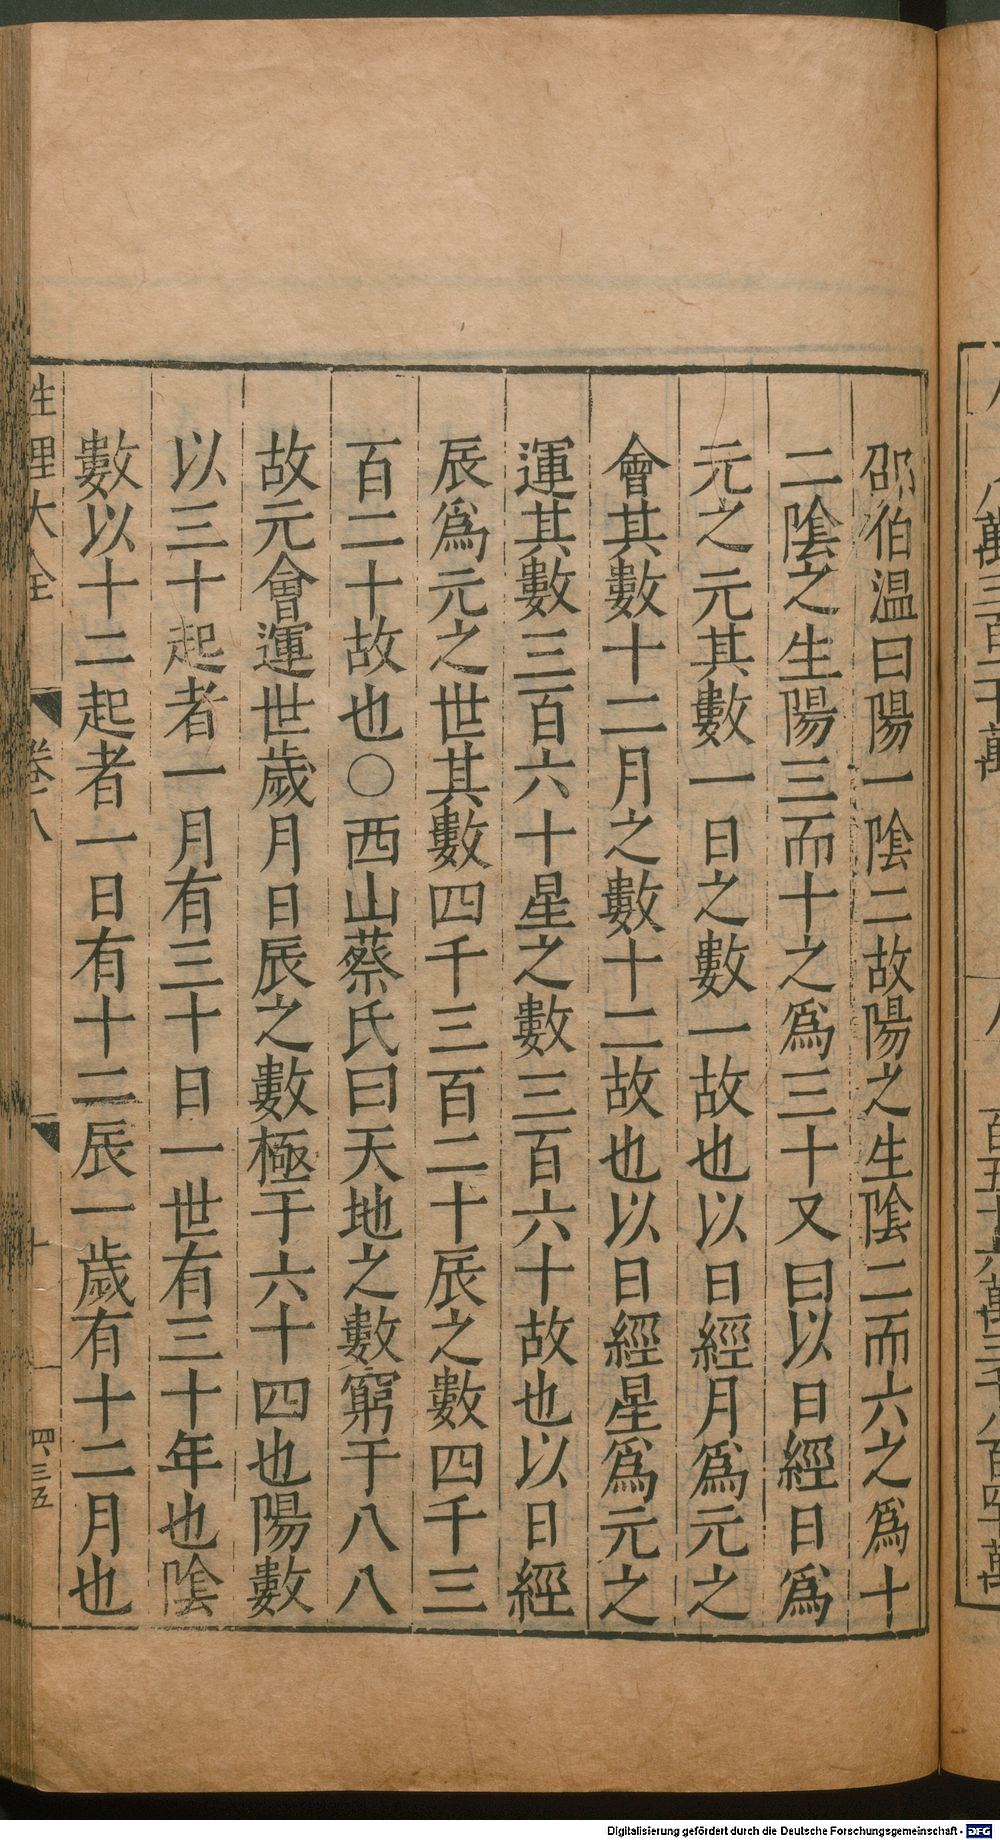 邵伯温曰陽一陰二故陽之生陰二而六之爲十
二陰之生陽三而十之爲三十又曰以日經日爲
元之元其數一日之數一故也以日經月爲元之
會其數十二月之數十二故也以日經星爲元之
運其數三百六十星之數三百六十故也以日經
辰爲元之世其數四千三百二十辰之數四千三
百二十故也○西山蔡氏曰天地之數窮于八八
故元會運世歲月日辰之數極于六十四也陽數
以三十起者一月有三十日一世有三十年也陰
數以十二起者一日有十二辰一歲有十二月也
性理大全 卷八 十 四三五
Digitalisierung gefördert durch die Deutsche Forschungsgemeinschaft - DFG